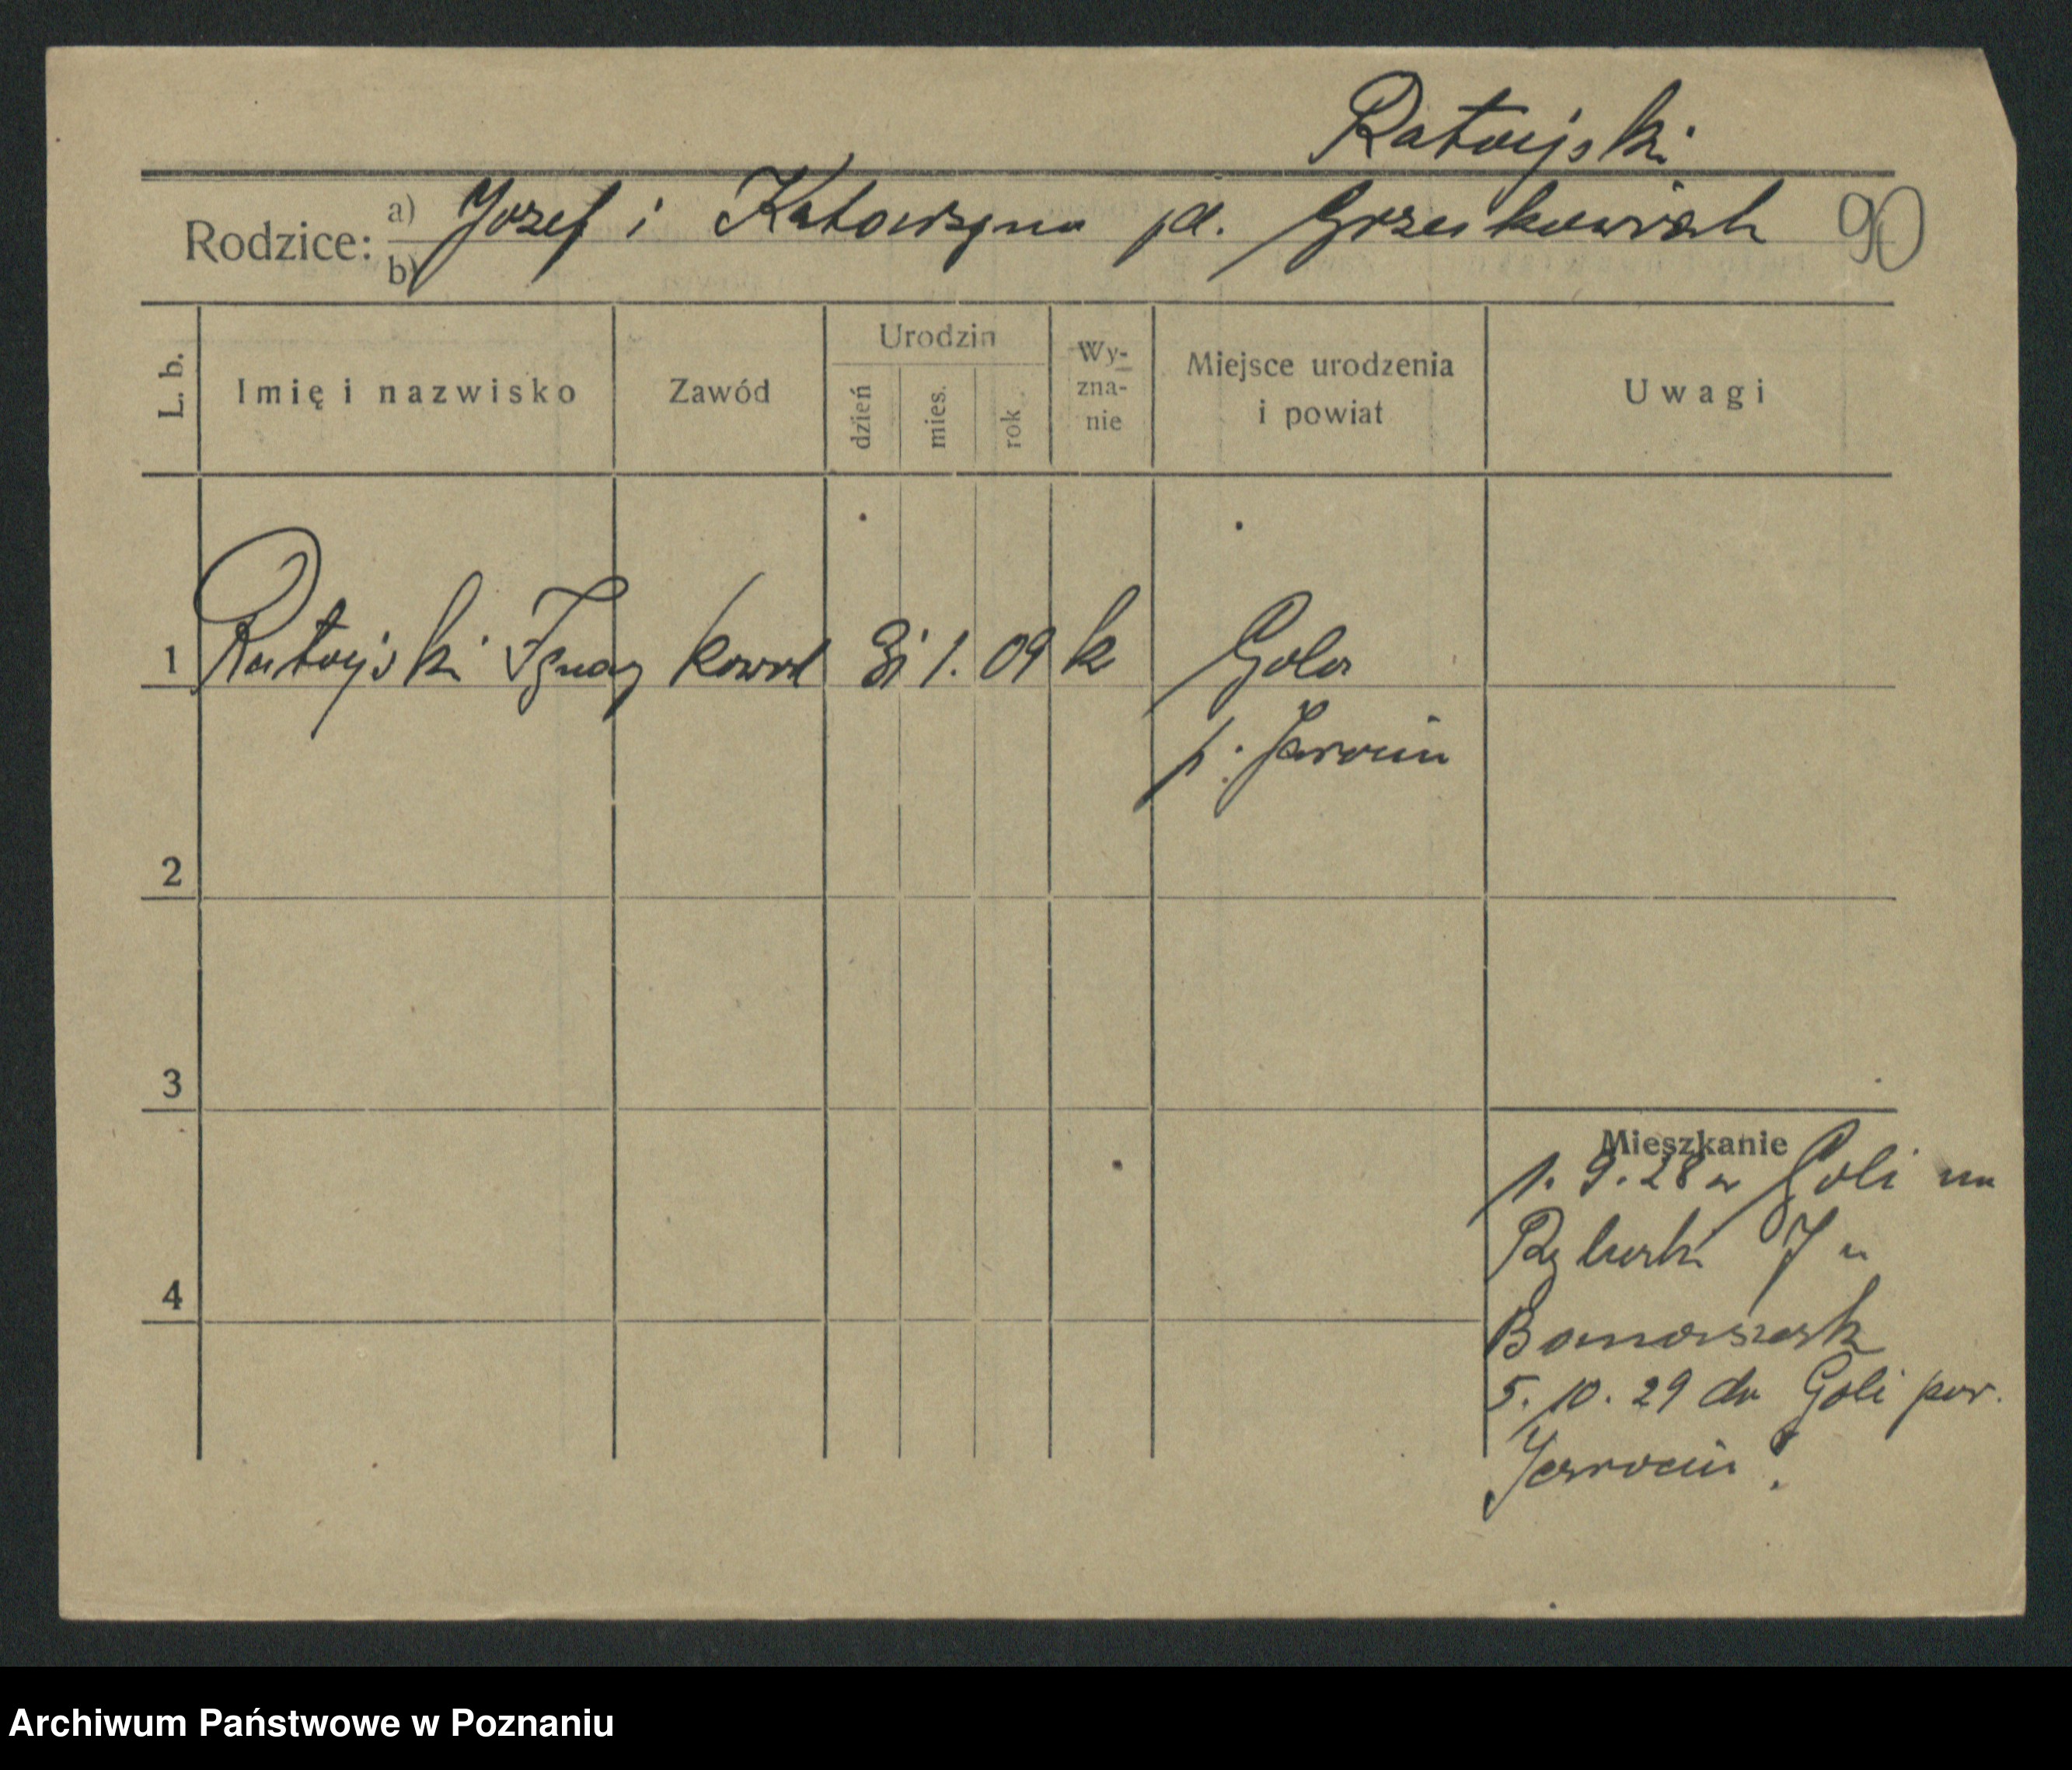 Ratajski
Rodzice: a) Jozef i Katarzyna d. Grześkowiak 90
b)
L. b.
Imię i nazwisko
Zawód
Urodzin
dzień
mies.
rok
Wy-
zna-
nie
Miejsce urodzenia
i powiat
Uwagi
1 Ratajski Ignacy kowal 31 1. 09 k Gola
p. Jarocin
2
3
Mieszkanie
1. 9. 28 w Goli na
Rybaki 7 u
4
5. 10. 29 do Goli pow.
Jarocin.
Archiwum Państwowe w Poznaniu